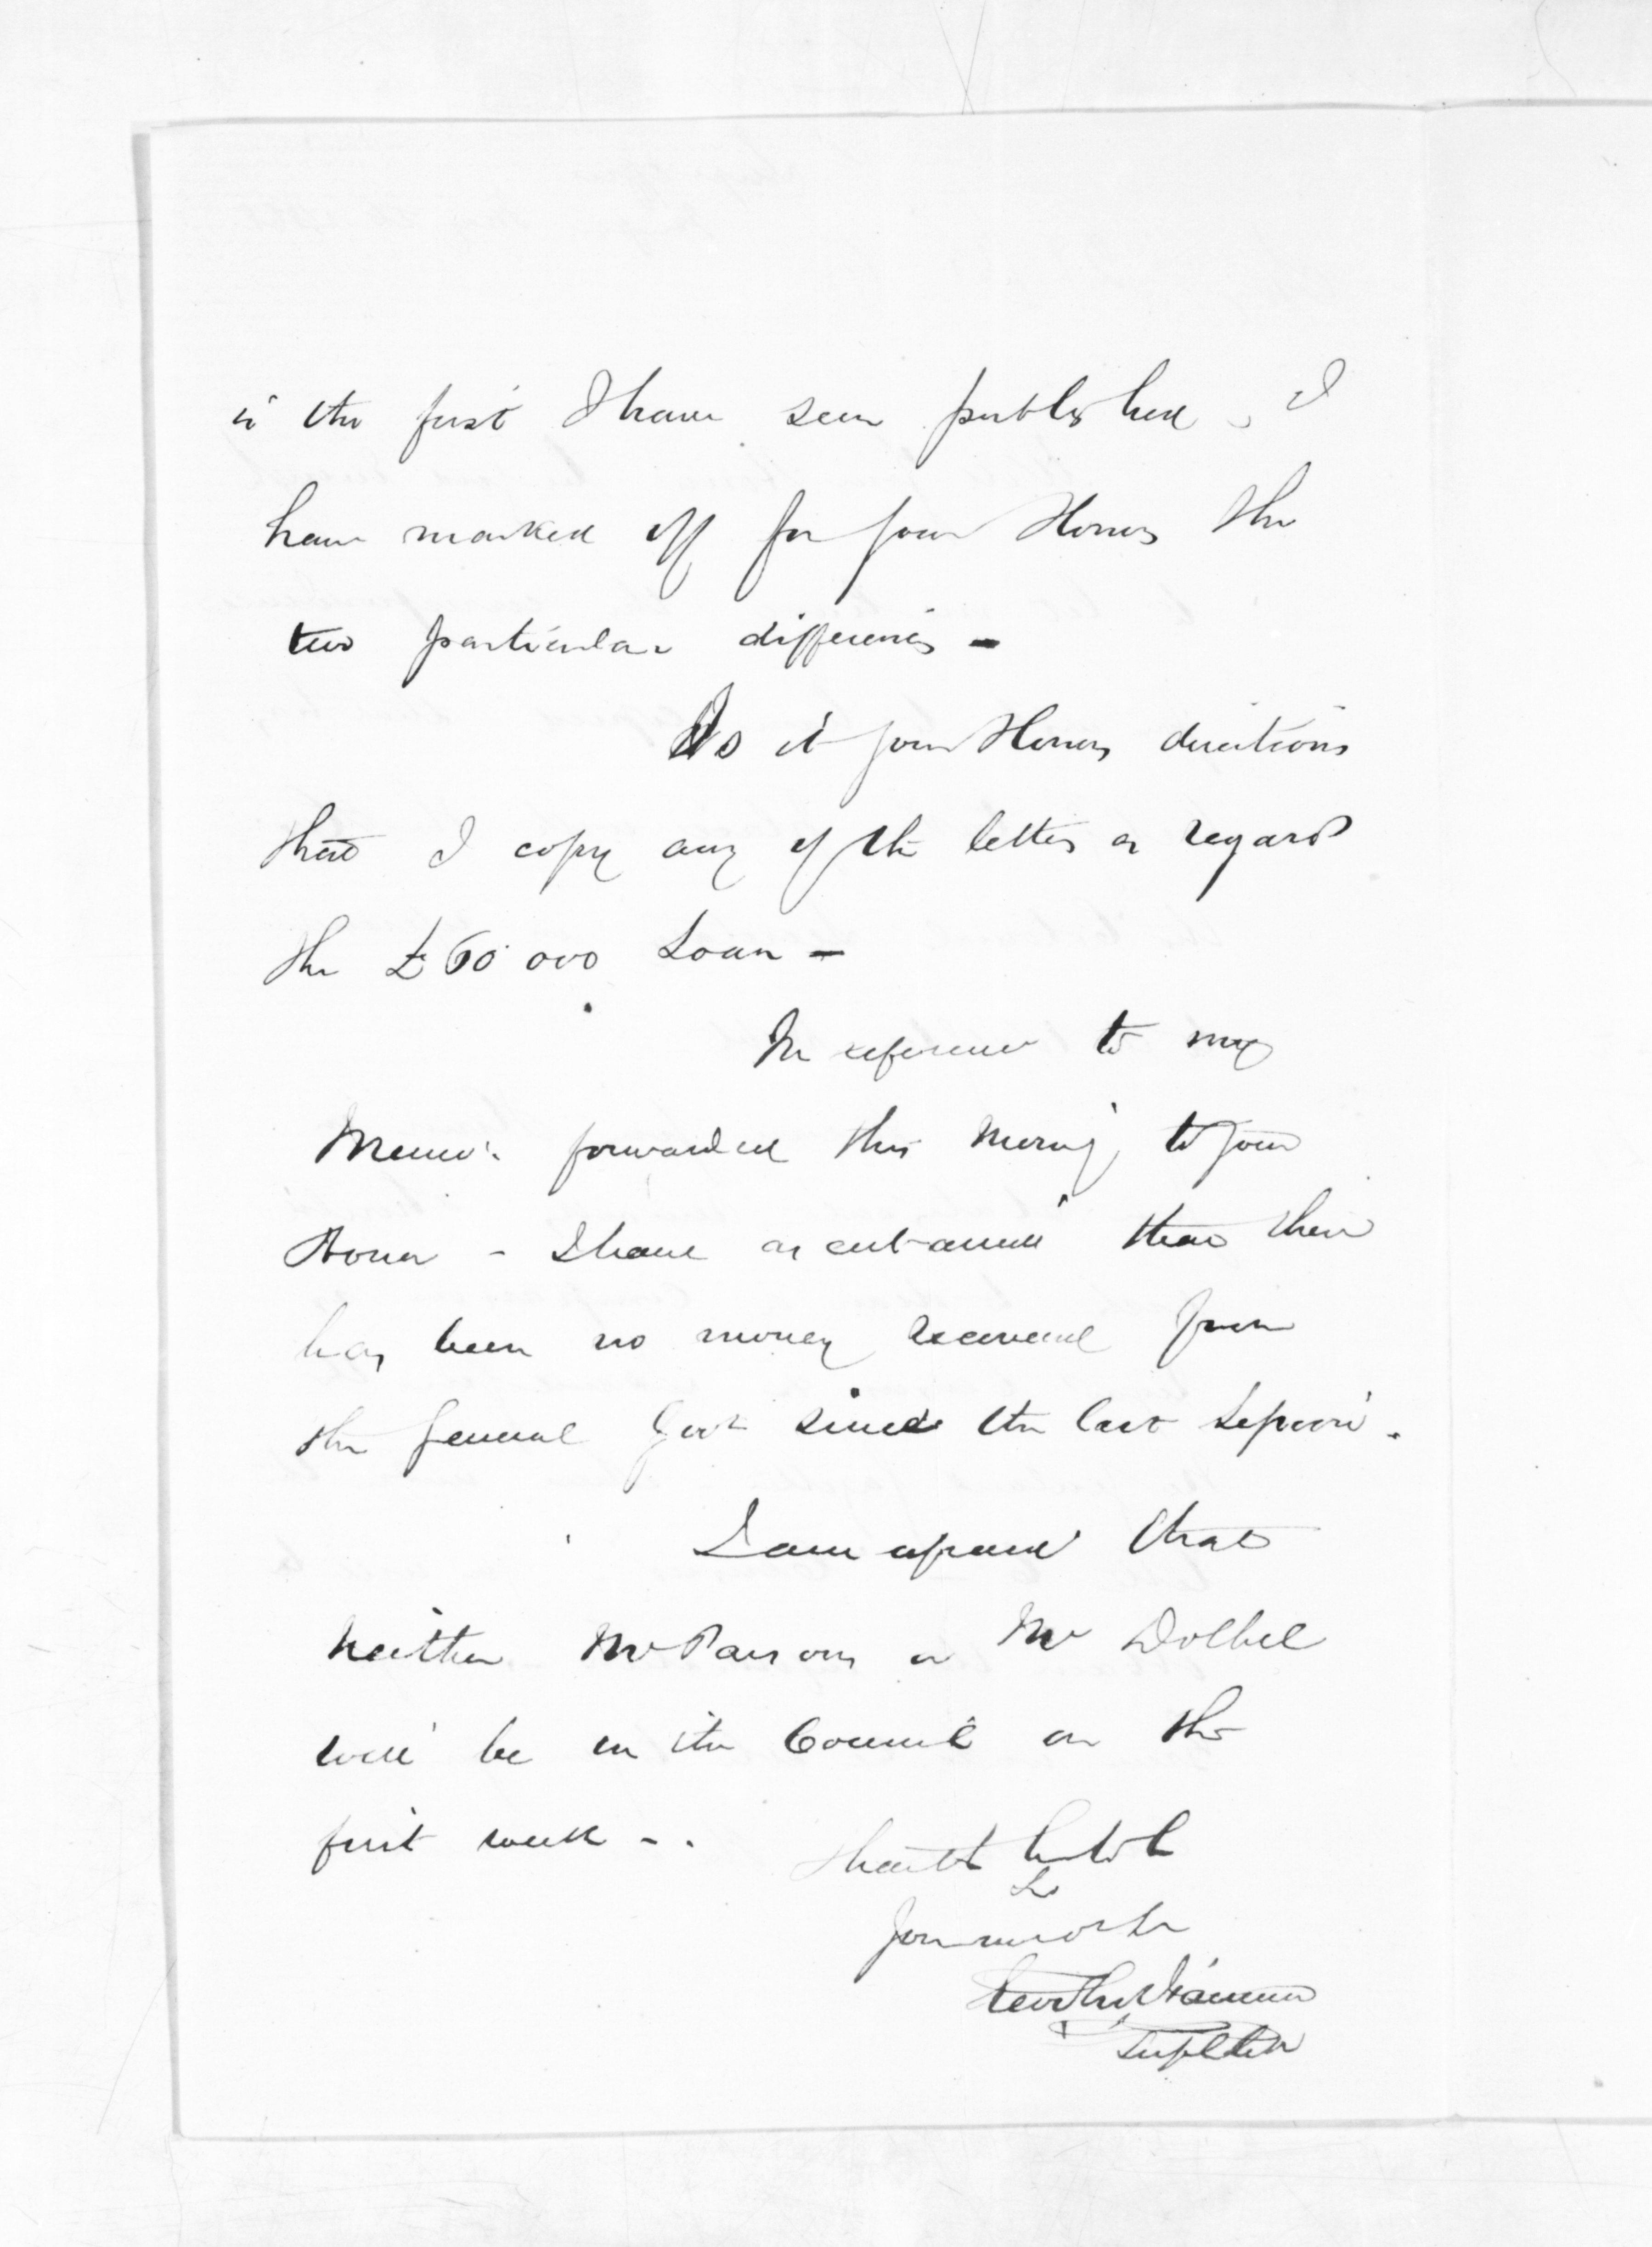 is the first I have seen published, I
have marked off for your Honor the
two particular differences -
Is it your Honors directions
that I copy any of the letters as regard
the £60,000 Loan -
In reference to my
Memo: forwarded this morning to your
Honor - I have ascertained that there
has been no money received from
the General Govt since the last deposit.
I am afraid that
neither Mr Parsons or Mr Dolbel
will be in the Council on the
first week - .
I have the honor to be
Sir
Your